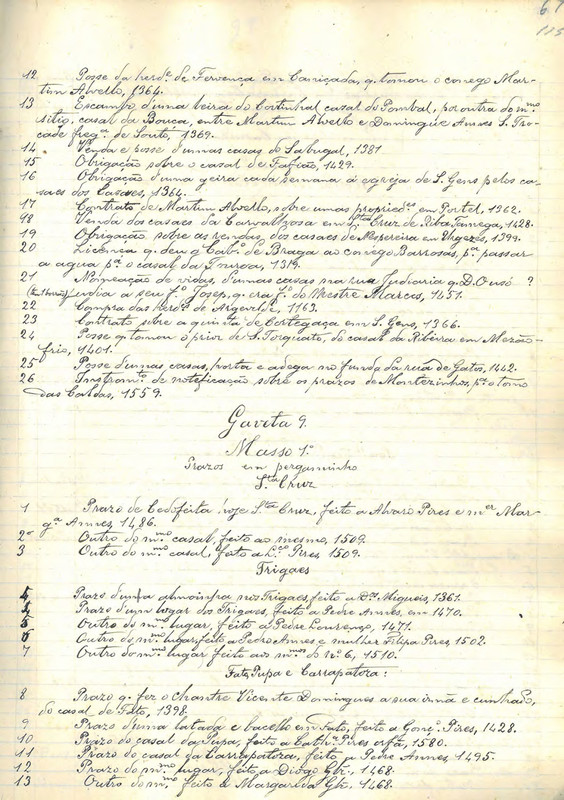 67
115
12 Posse da herd.e de Fervença em Caniçada, q. tomou o conego Mar-
tim Alvello, 1364.
13 Escampo d'uma leira do Cortinhal casal do Pombal, por outra do m.mo
sitio, casal da Bouca, entre Martim Alvello e Domingue Annes S. Tro-
cade freg.a de Souto, 1369.
14 Venda e posse d'umas casas do Sabugal, 1381
15 Obrigação sobre o casal de Fafião, 1429.
16 Obrigação d'uma geira cada semana á egreja de S. Gens pelos ca-
saes dos Casaes, 1364.
17 Contrato de Martim Alvello, sobre umas propried.es em Portel, 1362.
18 Venda dos casaes da Carvalhosa em S.ta Cruz de Riba Tamega, 1428.
19 Obrigação sobre as rendas dos casaes de Nespereira em Urgezes, 1399.
20 Licença q. deu o Cab.o de Braga ao conego Barrosas, p.a passar
a agua p.a o casal da 1319.
21 Nomeação de vidas, d'umas casas na rua Judiaria q. D. Ouso ?
endoa a seu f.o Josep, q. era f.o do Mestre Marcos, 1451.
22 Compra das herd.es de Argevide, 1163.
23 Contrato sobre a quinta de Cortegaça em S. Gens, 1366.
24 Posse q. tomou o prior de S. Torquato, do casal da Ribeira em Mezão-
frio, 1401.
25 Posse d'umas casas, porta e adega no fundo da rua de Gatos, 1442.
26 Instrom.to de notificação sobre os prazos de Montezinhos, p.a o tomo
das Caldas, 1559.
Gaveta 9.
Masso 1.o
Prazos em pergaminho
S.ta Cruz
1 Prazo de Cedofeita hoje S.ta Cruz, feito a Alvaro Pires e m.er Mar-
g.a Annes, 1486.
2o Outro do m.mo casal, feito ao mesmo, 1509.
3 Outro do m.mo casal, feito a L.co Pires, 1509.
Trigaes
4 Prazo d'uma almoinha nos Trigaes, feito a D.os Migueis, 1361.
Prazo d'um logar dos Trigaes, feito a Pedre Annes, em 1470.
5 Outro do m.mo lugar, feito a Pedre Lourenço, 1471.
6 Outro do m.mo lugar, feito a Pedro Annes e mulher Filipa Pires, 1502.
7 Outro do m.mo lugar feito aos m.mos do N.o 6, 1510.
Fato, Pupa e Carrapatoza:
8 Prazo q. fez o Chantre Vicente Domingues a sua irmã e cunhado,
do casal de Fato, 1398.
9 Prazo d'uma latada e bacello em Fato, feito a Gonç. Pires, 1428.
10 Prazo do casal da Pupa, feito a Cath.a Pires orfã, 1580.
11 Prazo do casal da Carrapatoza, feito a Pedre Annes, 1495.
12 Prazo do m.mo lugar, feito a Diogo Glz., 1468.
13 Outro do m.mo feito a Margarida Glz., 1468.